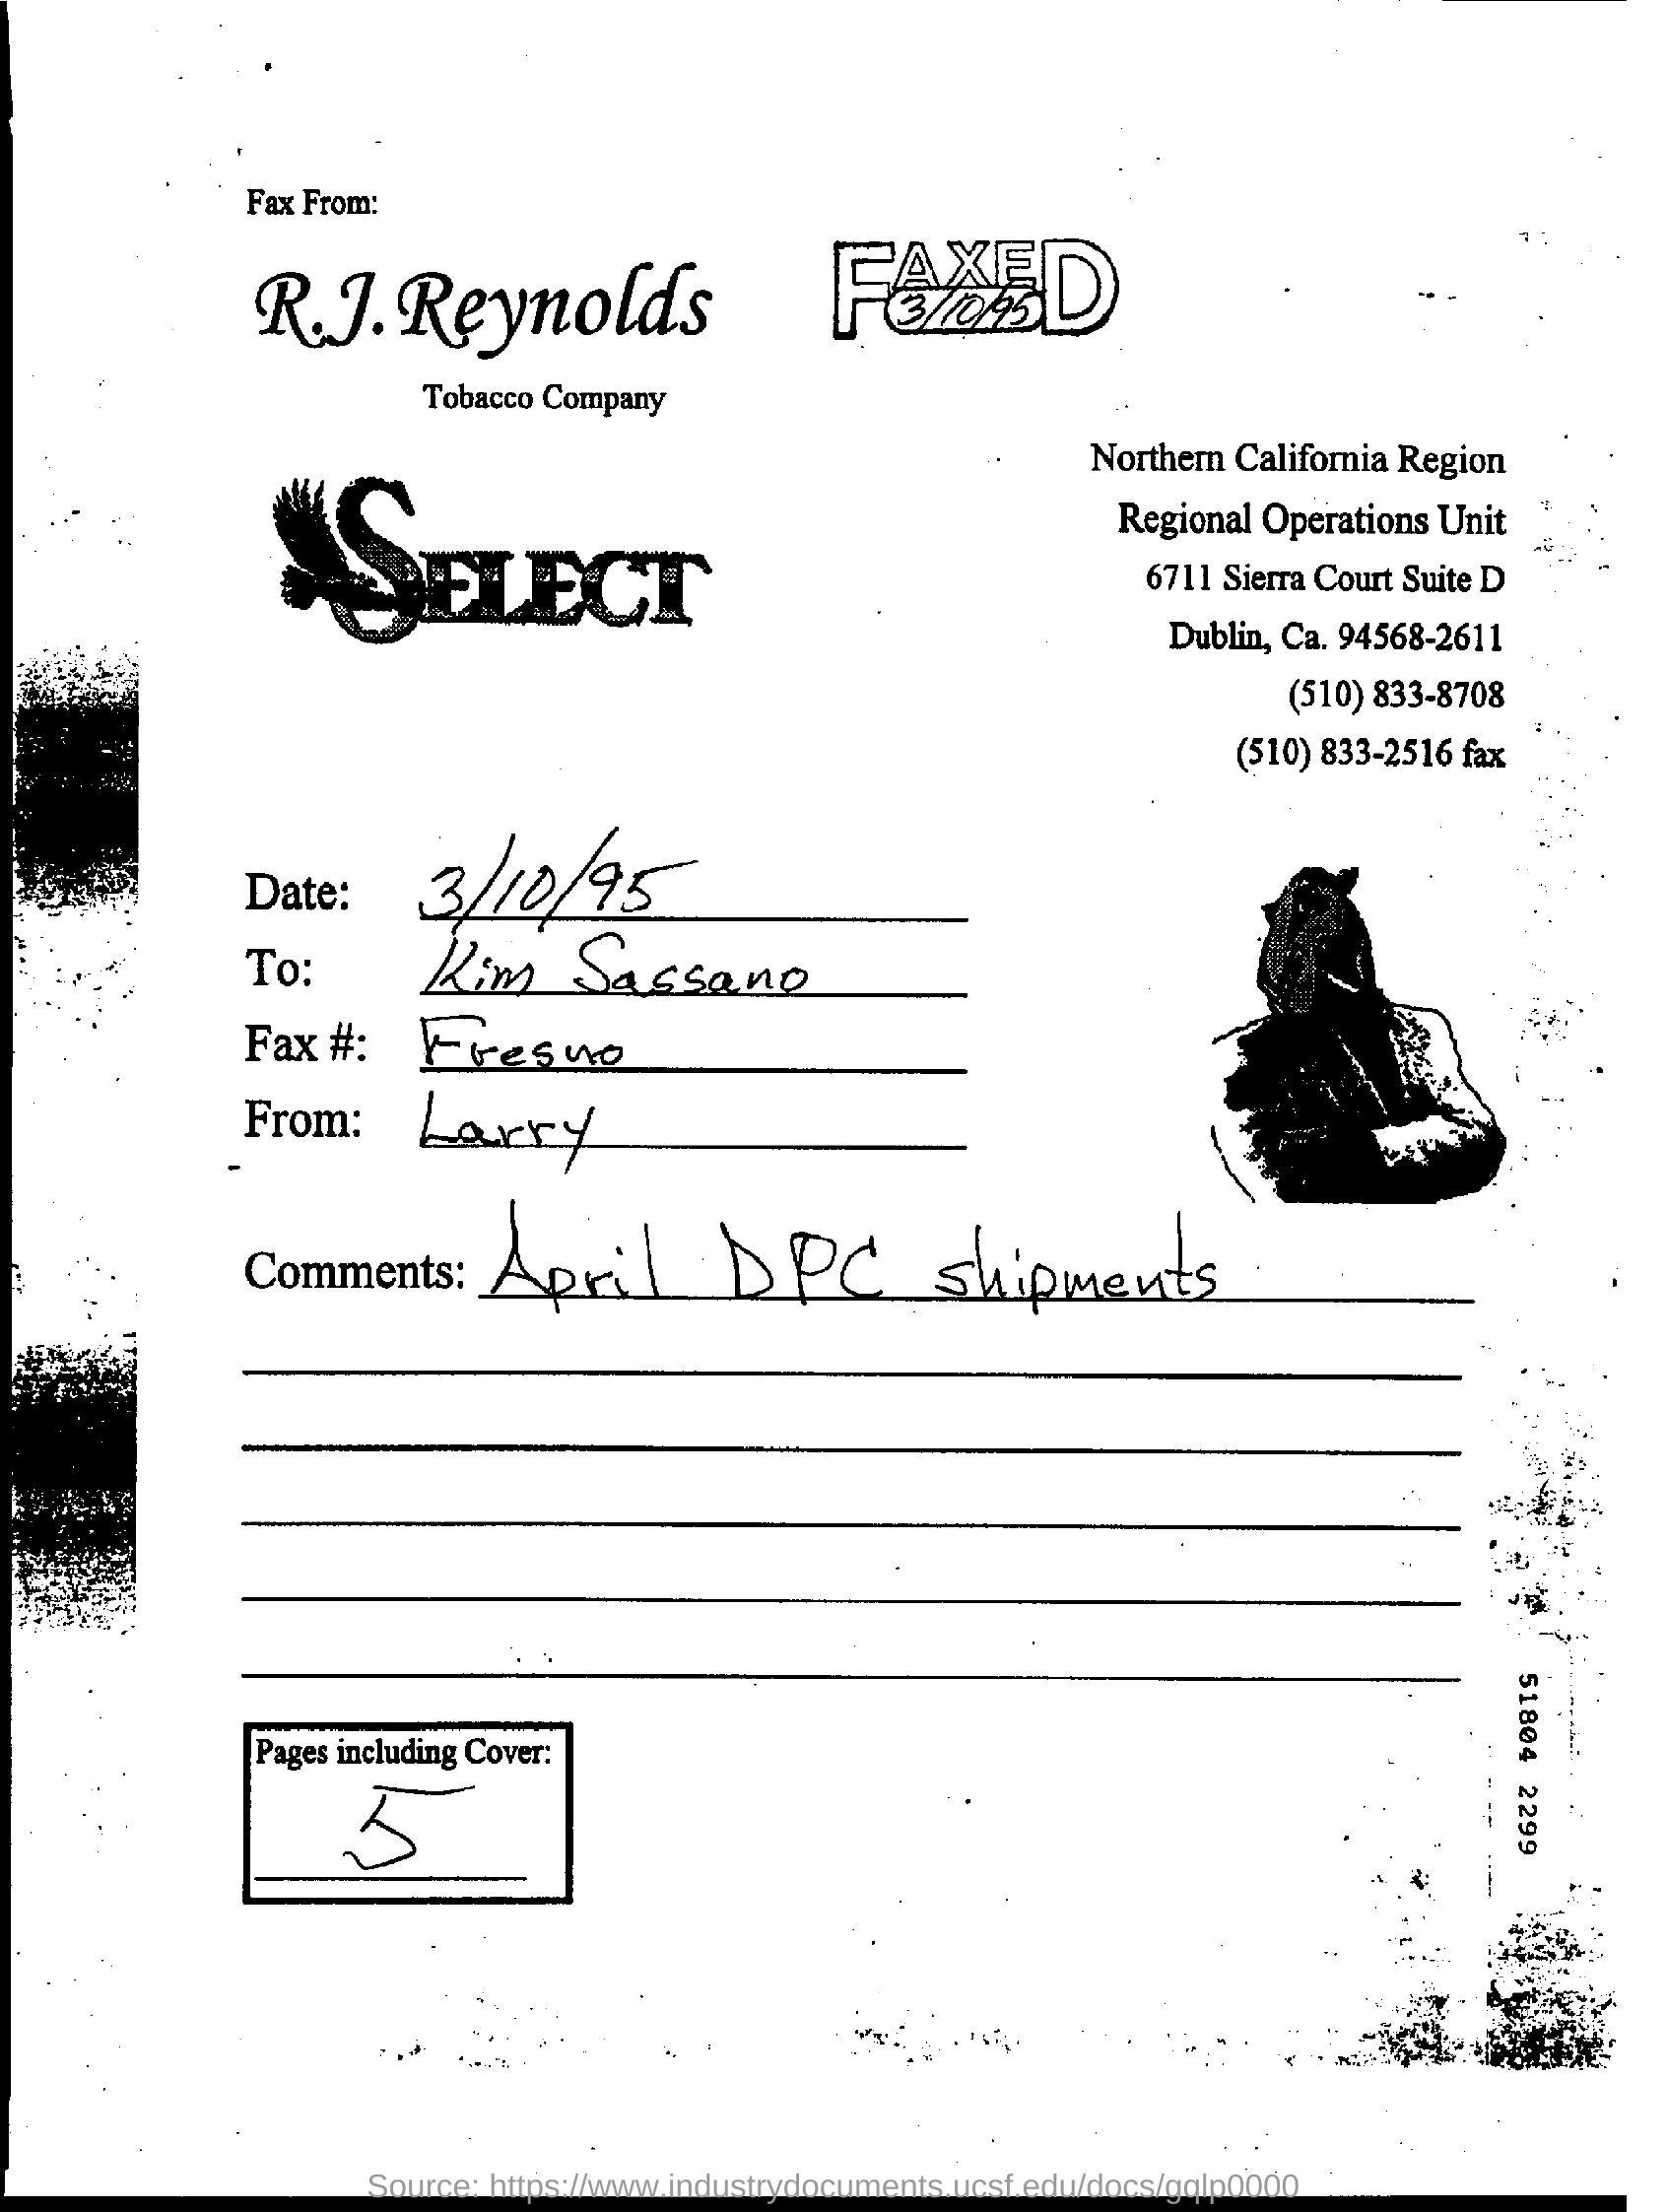 Fax From:
R.J. Reynolds
FAXED
3/10/95
Tobacco Company
SELECT
Northern California Region
Regional Operations Unit
6711 Sierra Court Suite D
Dublin, Ca. 94568-2611
(510) 833-8708
(510) 833-2516 fax
Date: 3/10/95
To: Kim Sassano
Fax #: Fresno
From: Larry
Comments: April DPC shipments
Pages including Cover:
5
51804 2299
Source: https://www.industrydocuments.ucsf.edu/docs/gqlp0000